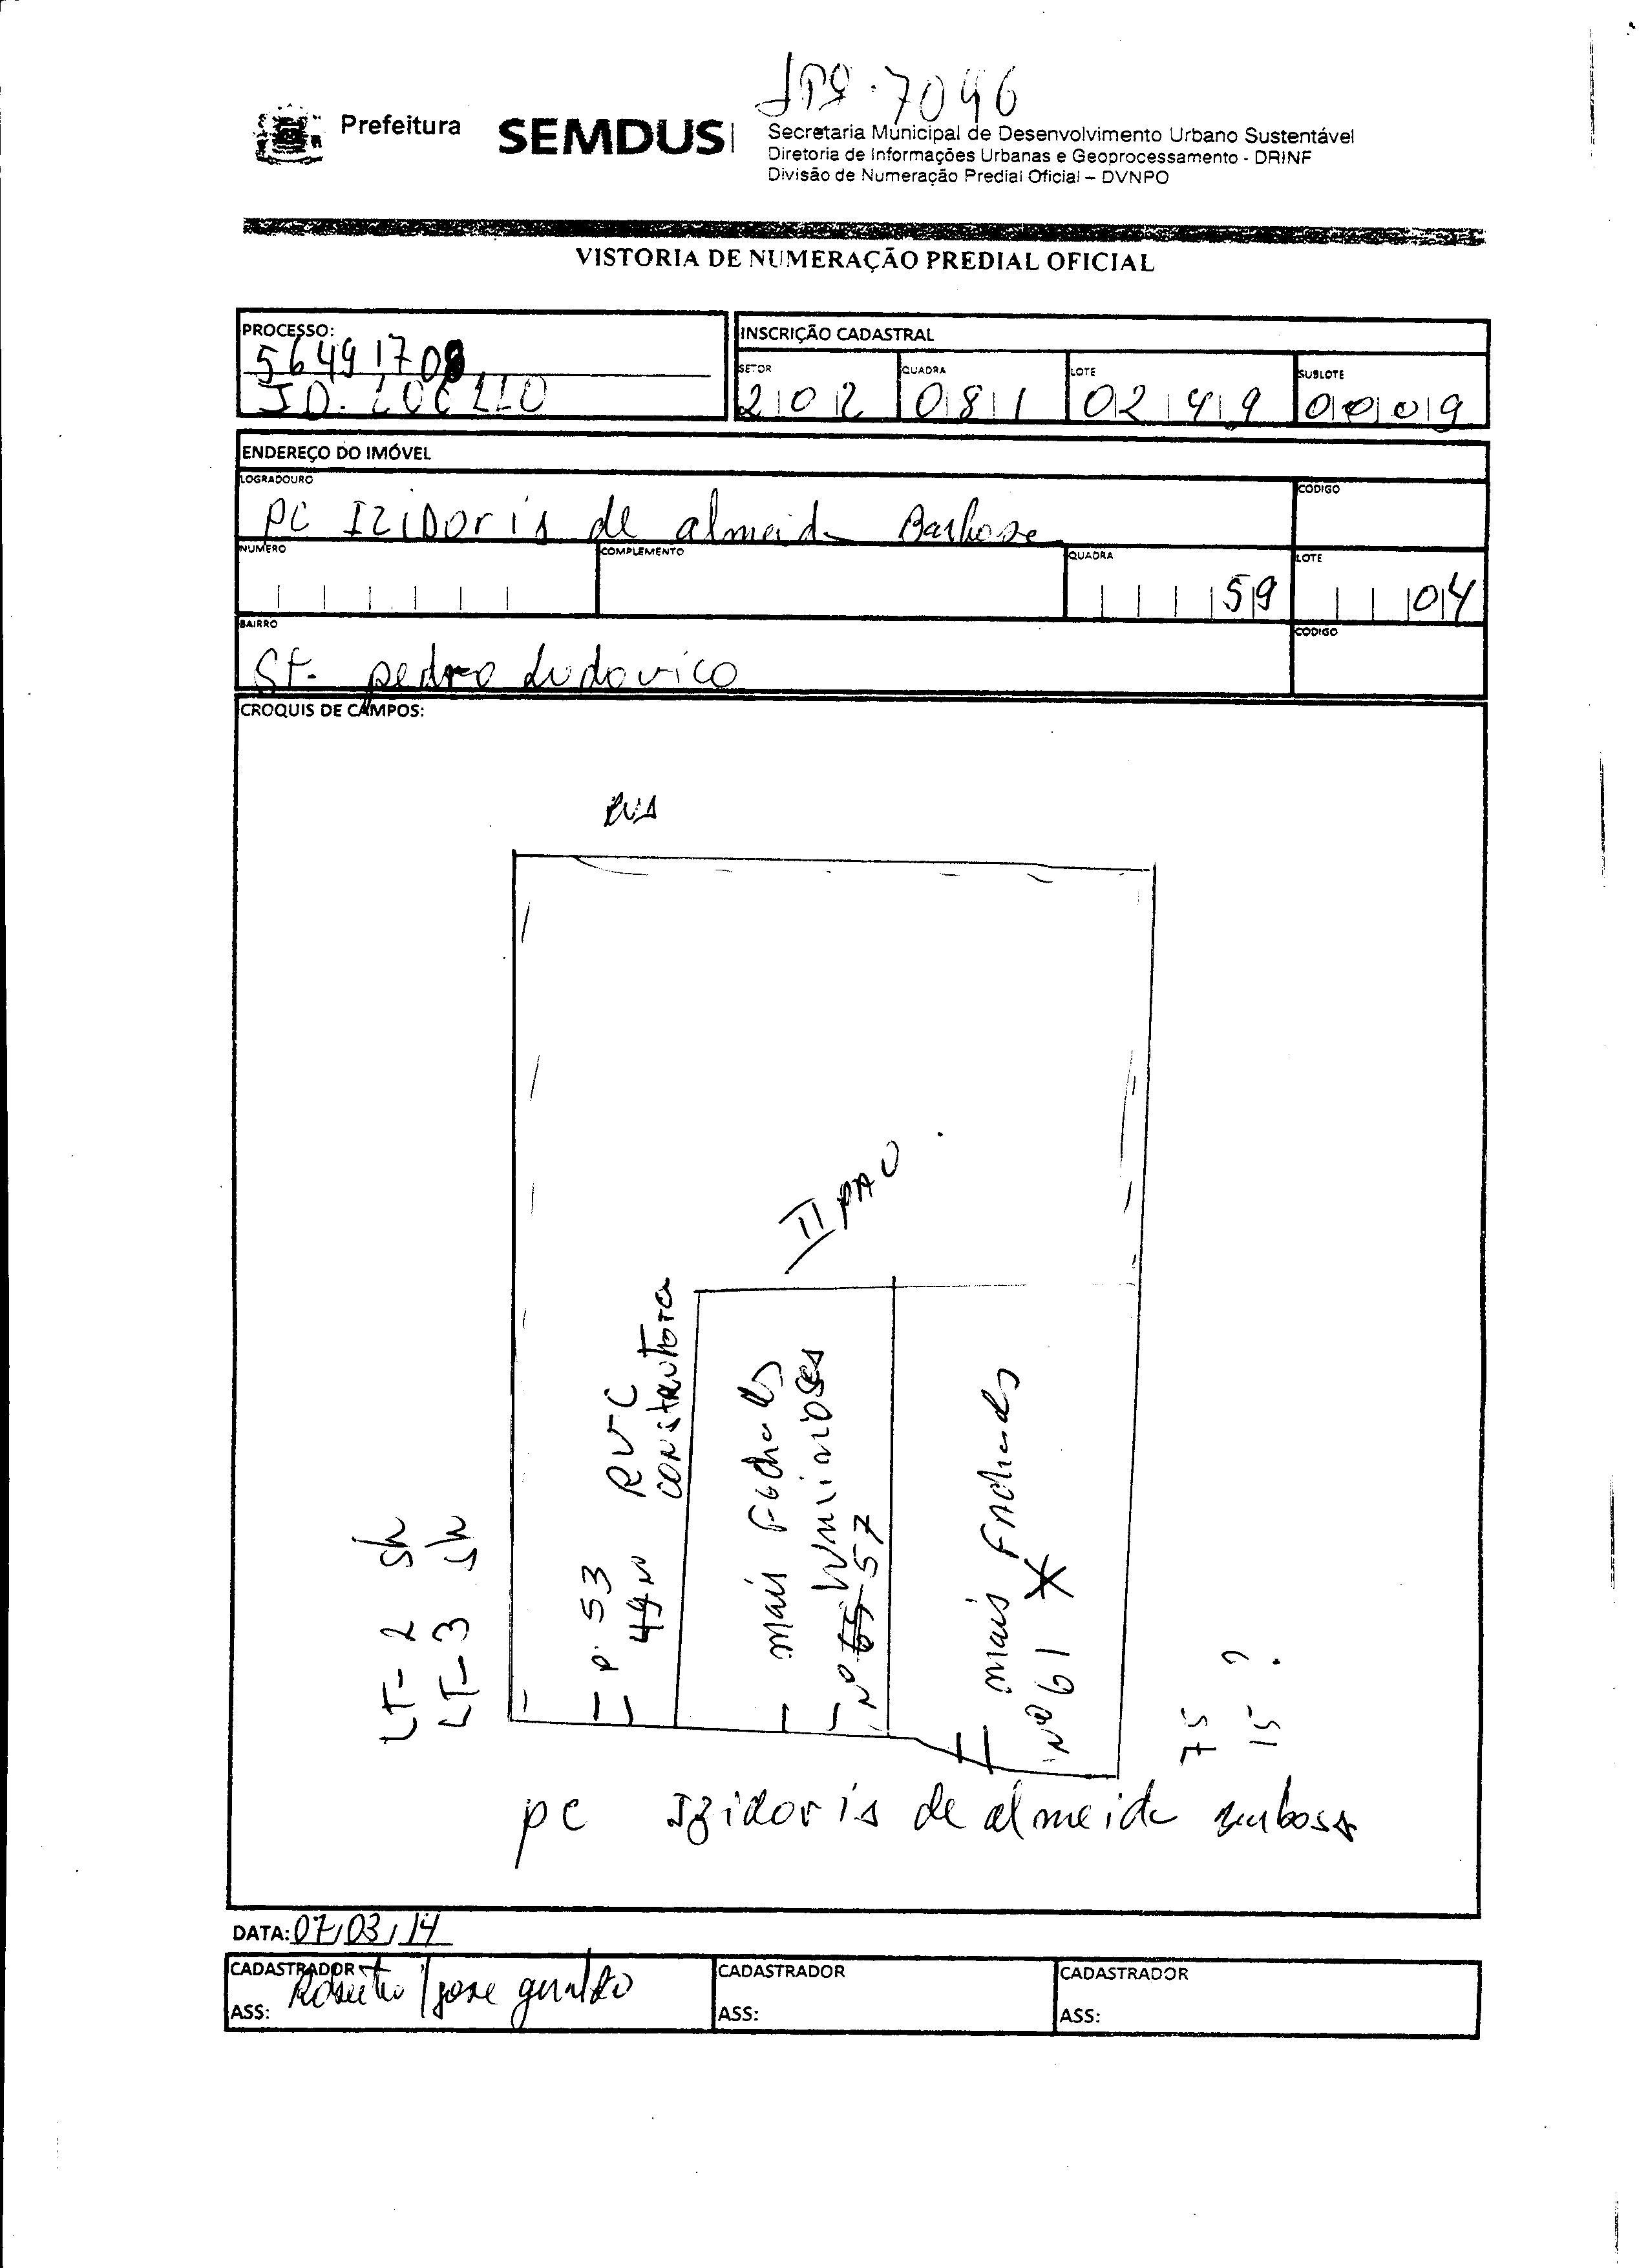 7046
Prefeitura
SEMDUS
Secretaria Municipal de Desenvolvimento Urbano Sustentável
Diretoria de Informações Urbanas e Geoprocessamento - DRINF
Divisão de Numeração Predial Oficial – DVNPO
VISTORIA DE NUMERAÇÃO PREDIAL OFICIAL
PROCESSO:
5649170
INSCRIÇÃO CADASTRAL
SETOR QUADRA LOTE SUBLOTE
202 081 0249 0009
ENDEREÇO DO IMÓVEL
LOGRADOURO CÓDIGO
PC IZIDoris de almeida Barbosa
NUMERO COMPLEMENTO QUADRA LOTE
59 04
BAIRRO CÓDIGO
St. pedro Ludovico
CROQUIS DE CAMPOS:
RUA
II PAV
RVC
construtora
53
mais Fachadas
Nº 57
mais Fachadas
Nº 61
LT-2
LT-3
75
15 ?
pc Izidoris de almeida
DATA: 07/03/14
CADASTRADOR CADASTRADOR CADASTRADOR
jose geraldo
ASS: ASS: ASS: